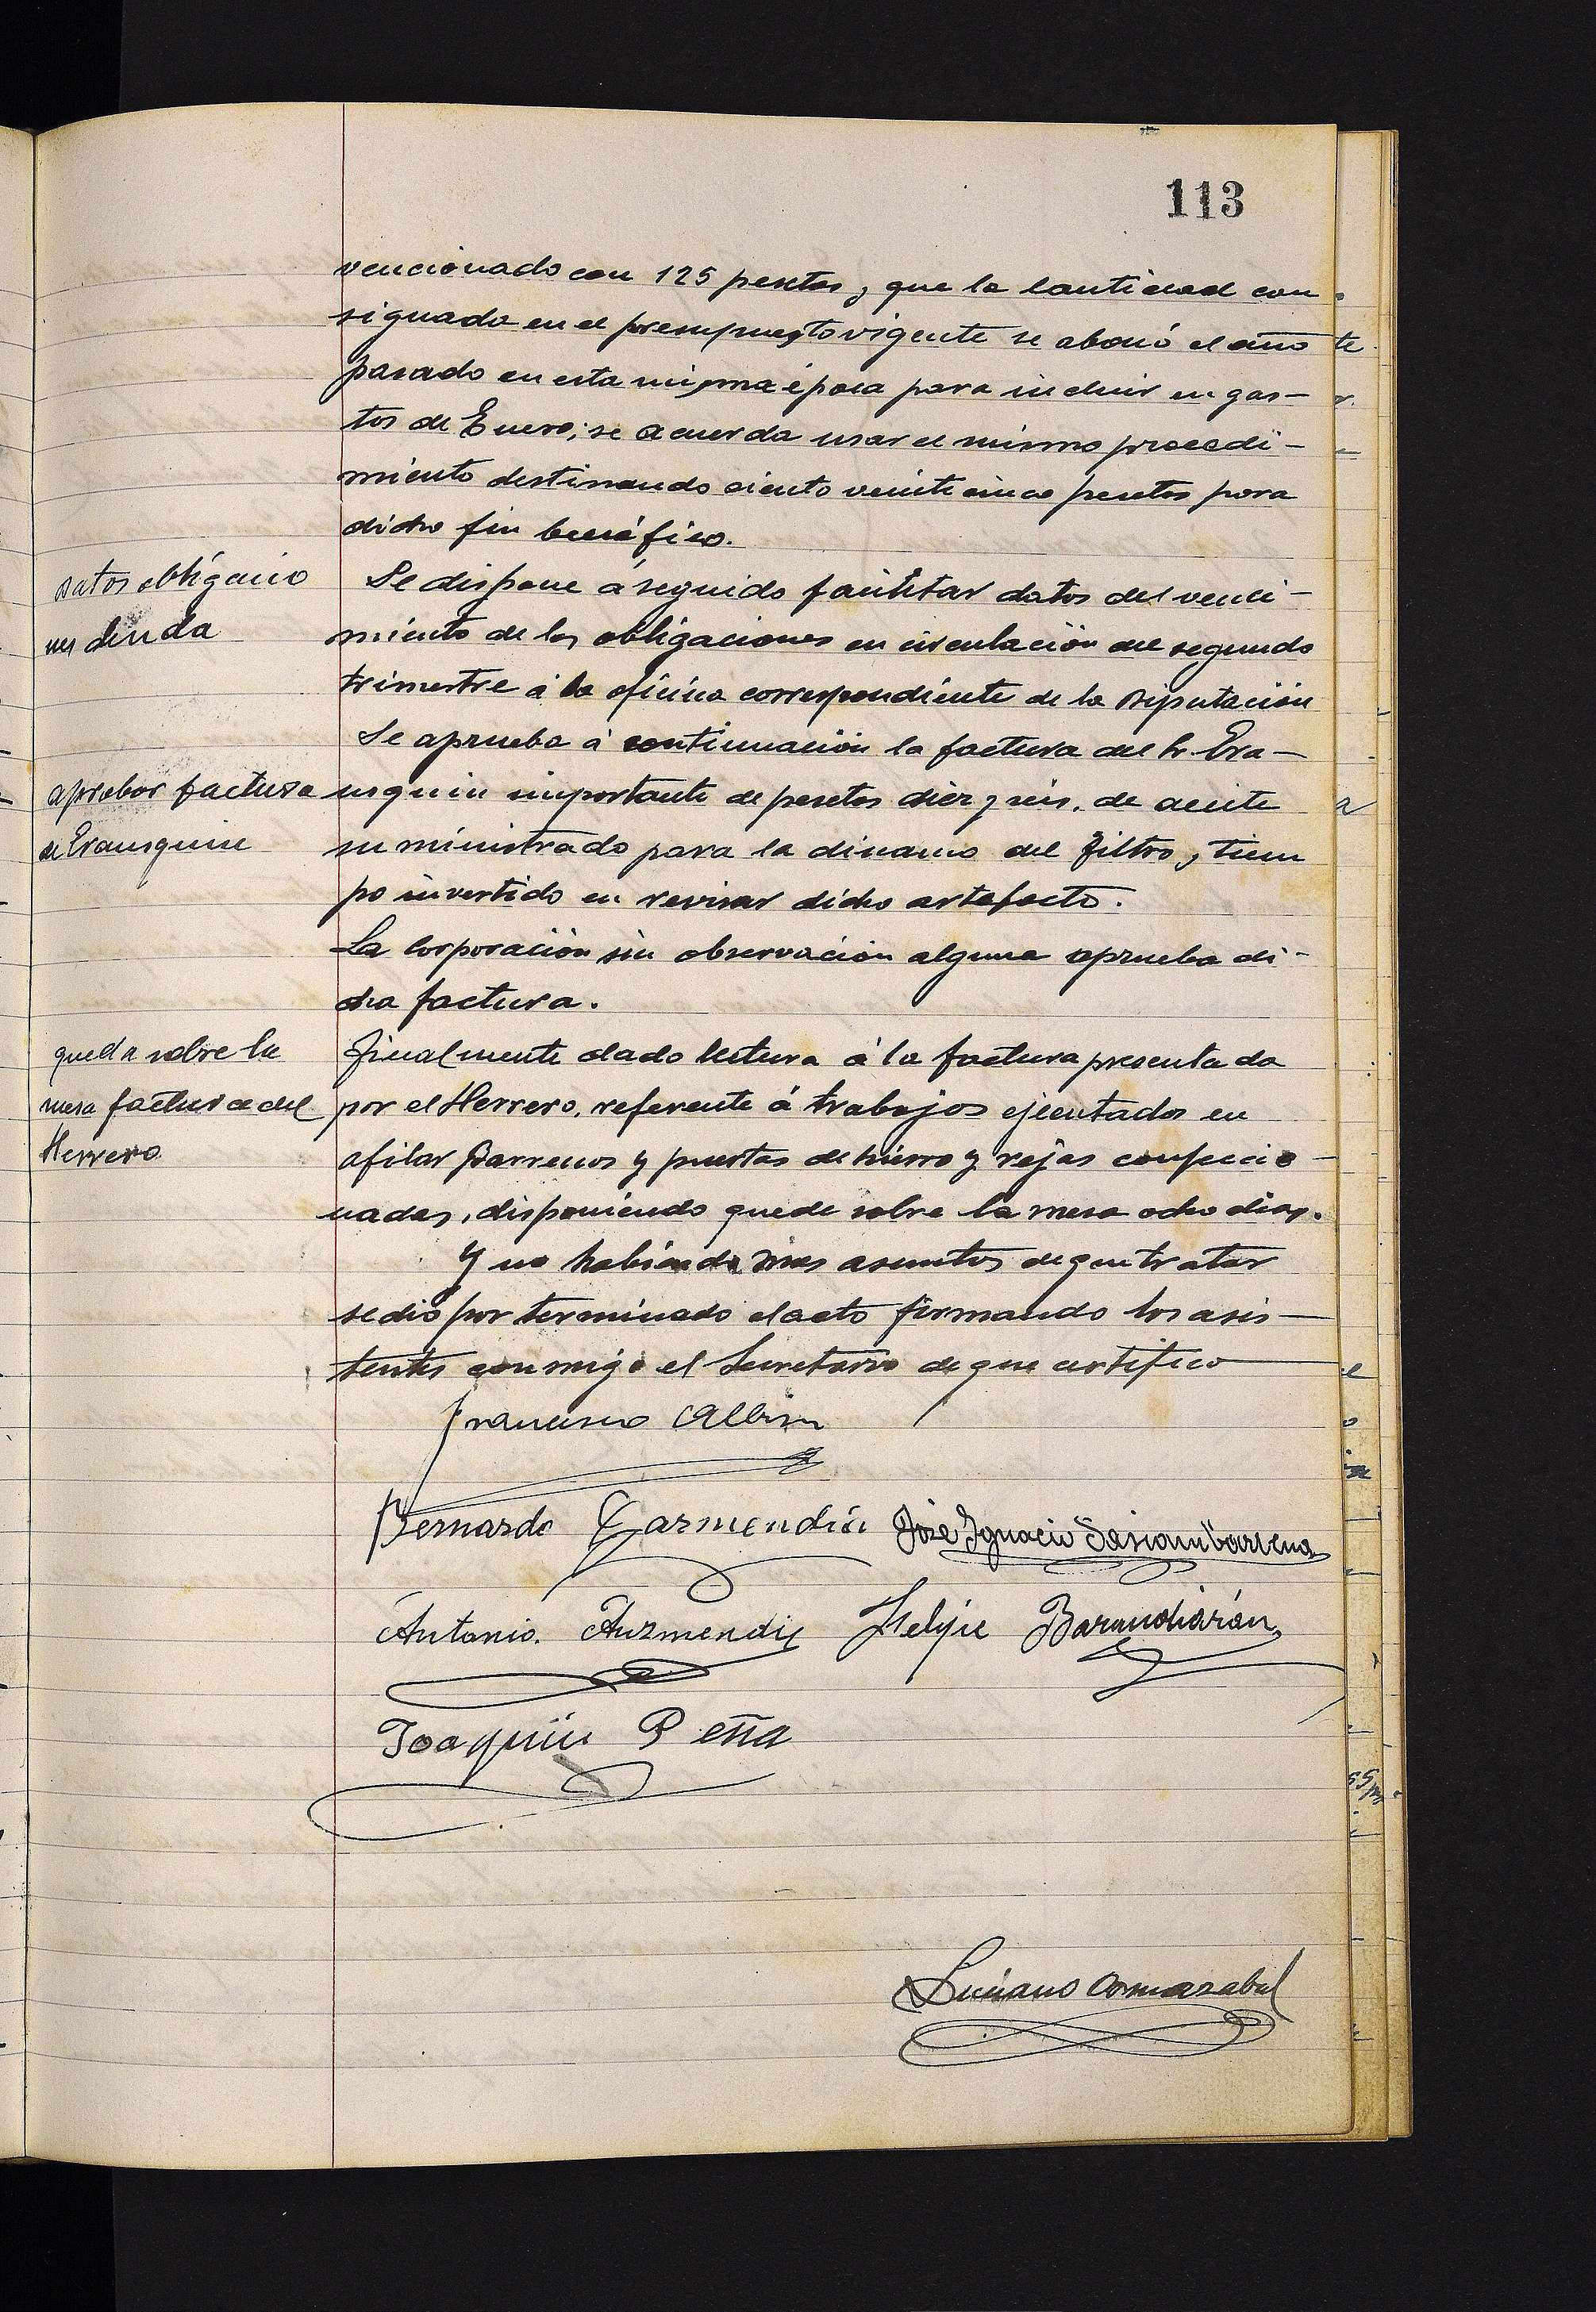 113
vencionado con 125 pesetas y que la cantidad con-
signada en el presupuesto vigente se abonó el año
pasado en esta misma época para incluir en gas-
tos de Enero; se acuerda usar el mismo procedi-
miento destinando ciento veinticinco pesetas para
dicho fin benéfico.
Datos obligacio
nes deuda
Se dispone á seguido facilitar datos del venci-
miento de las obligaciones en circulación del segundo
trimestre á la oficina correspondiente de la Diputación
aprobar factura
de Erausquin
Se aprueba á continuación la factura del Sr. Era-
usquin importante de pesetas diez y seis, de aceite
suministrado para la dinamo del filtro, y tiem
po invertido en revisar dicho artefacto.
La Corporación sin observación alguna aprueba di-
cha factura.
queda sobre la
mesa factura del
Herrero
Finalmente dado lectura á la factura presentada
por el Herrero, referente á trabajos ejecutados en
afilar Barrenos y puertas de hierro y rejas confeccio-
nadas, disponiendo quede sobre la mesa ocho dias.
Y no habiendo mas asuntos de que tratar
se dió por terminado el acto firmando los asis-
tentes conmigo el Secretario de que certifico
Francisco Albisu
Bernardo Garmendia José Ignacio Sasiambarrena
Antonio Auzmendi Felipe Barandiarán
Joaquín Peña
Luciano Ormazabal